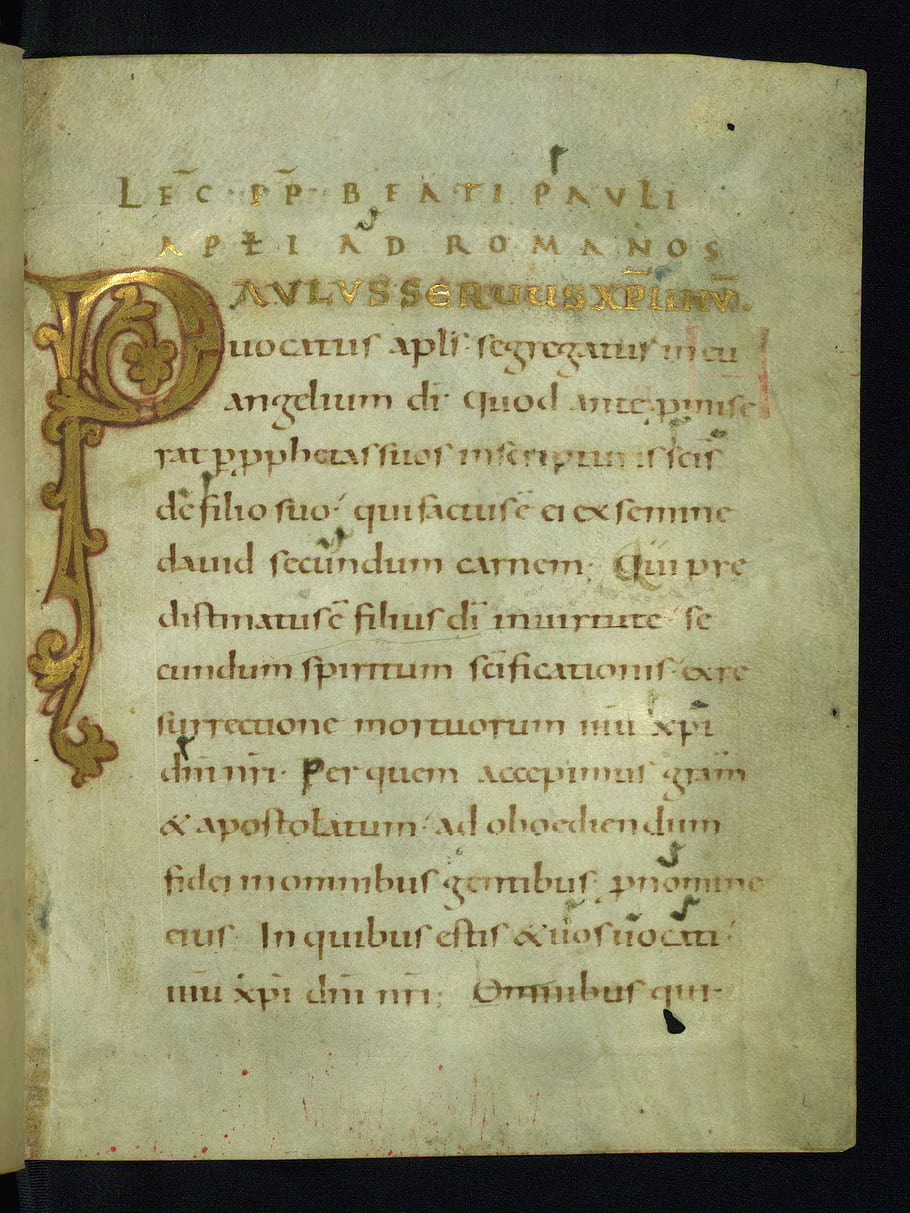 LEC̄ EP̄ BEATI PAULI
APŁI AD ROMANOS
PAULUS SERUUS XP̄I IHŪ.
uocatus apl̄s segregatus in eu
angelium dī. Quod ante promise
rat ꝑ ꝓphetas suos in scripturis sc̄is
de filio suo qui factus ē ei ex semine
dauid secundum carnem; Qui pre
distinatus ē filius dī in uirtute se
cundum spiritum sc̄ificationis ex re
surrectione mortuorum ihū xp̄i
dn̄i nr̄i. Per quem accepimus gr̄am
& apostolatum ad oboediendum
fidei in omnibus gentibus ꝓ nomine
eius. In quibus estis & uos uocati
ihū xp̄i dn̄i nr̄i; Omnibus qui